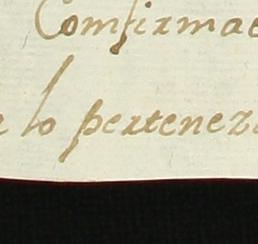 Comfirmae
e lo perteneze